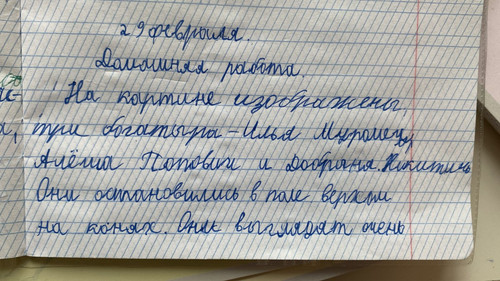 29 февраля.
Домашняя работа.
На картине изображены
три богатыра - Илья Муромец,
Алёша Попович и Добрыня Никитичь
Они остановились в поле верхом
на конях. Они выглядят очень